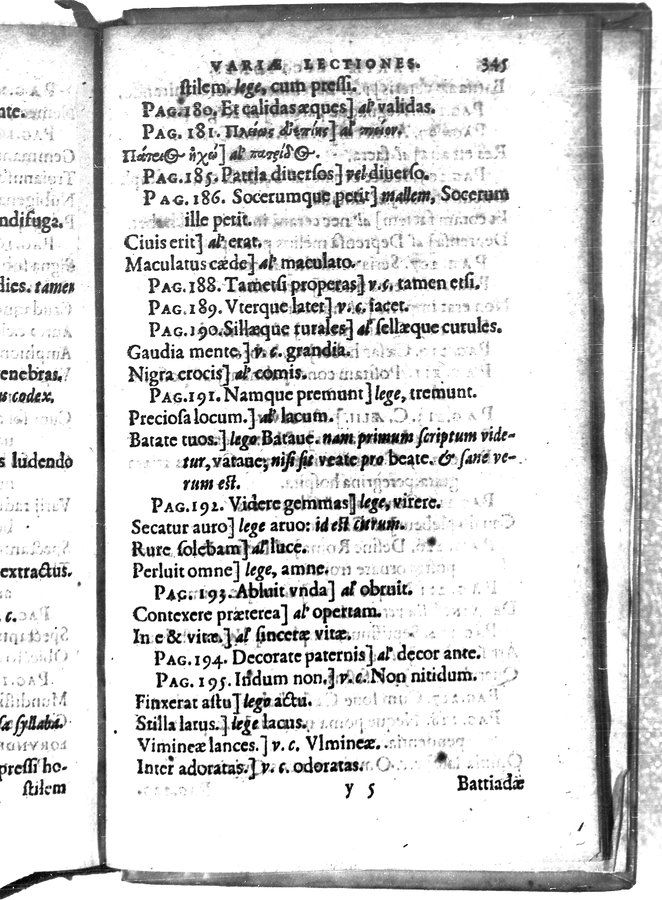 nte.
ndifuga.
dies. tamen
enebras.
us codex,
s ludendo
extractus.
. c.
sæ syllaba.
pressi ho-
stilem
VARIÆ LECTIONES. 345
stilem. lege, cum pressi.
PAG. 180. Et calidas æques] al' validas.
PAG. 181.
PAG. 185. Patria diuersos] vel diuerso.
PAG. 186. Socerumque petit] mallem, Socerum
ille petit.
Ciuis erit] al' erat.
Maculatus cæde] al' maculato.
PAG. 188. Tametsi properas] v. c. tamen etsi.
PAG. 189. Vterque later] v. c. iacet.
PAG. 190. Sillæque turales] al' sellæque curules.
Gaudia mente,] v. c. grandia.
Nigra crocis] al' comis.
PAG. 191. Namque premunt] lege, tremunt.
Preciosa locum.] al' lacum.
Batate tuos.] lego Bataue. nam primum scriptum vide-
tur, vataue; nisi sit veate pro beate. & sane ve-
rum est.
PAG. 192. Videre gemmas] lege, virere.
Secatur auro] lege aruo: id est
Rure solebam] al' luce.
Perluit omne] lege, amne.
PAG. 193. Abluit vnda] al' obruit.
Contexere præterea] al' opertam.
In e & vitæ.] al' sinceræ vitæ.
PAG. 194. Decorate paternis] al' decor ante.
PAG. 195. Itidum non.] v. c. Non nitidum.
Finxerat astu] lego actu.
Stilla latus.] lege lacus.
Vimineæ lances.] v. c. Vlmineæ.
Inter adoratas.] v. c. odoratas.
y 5 Battiadæ